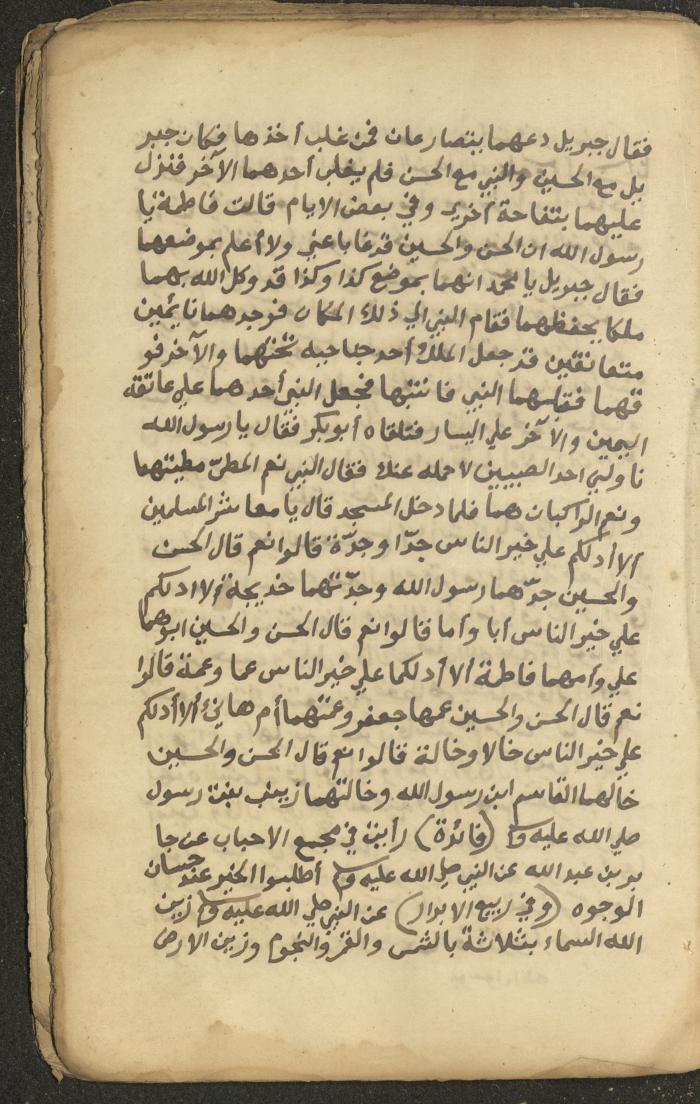 فقال جبريل دعهما يتصارعان فمن غلب أخذها فكان جبر
يل مع الحسين والنبي مع الحسن فلم يغلب أحدهما الآخر فنزل
عليهما بتفاحة أخرى وفي بعض الايام قالت فاطمة يا
رسول الله ان الحسن والحسين قد غابا عني ولا أعلم بموضعهما
فقال جبريل يا محمد انهما بموضع كذا وكذا قد وكل الله بهما
ملكا يحفظهما فقام النبي الي ذلك المكان فوجدهما نايمين
متعانقين قد جعل الملك أحد جناحيه تحتهما والآخر فو
قهما فقبلهما النبي فانتبها فجعل النبي أحدهما علي عاتقه
اليمين والآخر علي اليسار فتلقاه أبو بكر فقال يا رسول الله
ناولني احد الصبيين لاحمله عنك فقال النبي نعم المطيّ مطيتهما
ونعم الراكبان هما فلما دخل المسجد قال يا معاشر المسلمين
ألا أدلكم علي خير الناس جدّا وجدّة قالوا نعم قال الحسن
والحسين جدّهما رسول الله وجدّتهما خديجة ألا ادلكم
علي خير الناس أبا وأما قالوا نعم قال الحسن والحسين ابوهما
علي وأمهما فاطمة ألا أدلكما علي خير الناس عما وعمة قالوا
نعم قال الحسن والحسين عمها جعفر وعمتهما أم هانئ ألا أدلكم
علي خير الناس خالا وخالة قالوا نعم قال الحسن والحسين
خالهما القاسم ابن رسول الله وخالتهما زينب بنت رسول
صلي الله عليه وسلم (فائدة) رأيت في مجمع الاحباب عن جا
بر بن عبد الله عن النبي صلي الله عليه وسلم أطلبوا الخير عند حسان
الوجوه (وفي ربيع الابرار) عن النبي صلي الله عليه وسلم زين
الله السماء بثلاثة بالشمس والقمر والنجوم وزين الارض